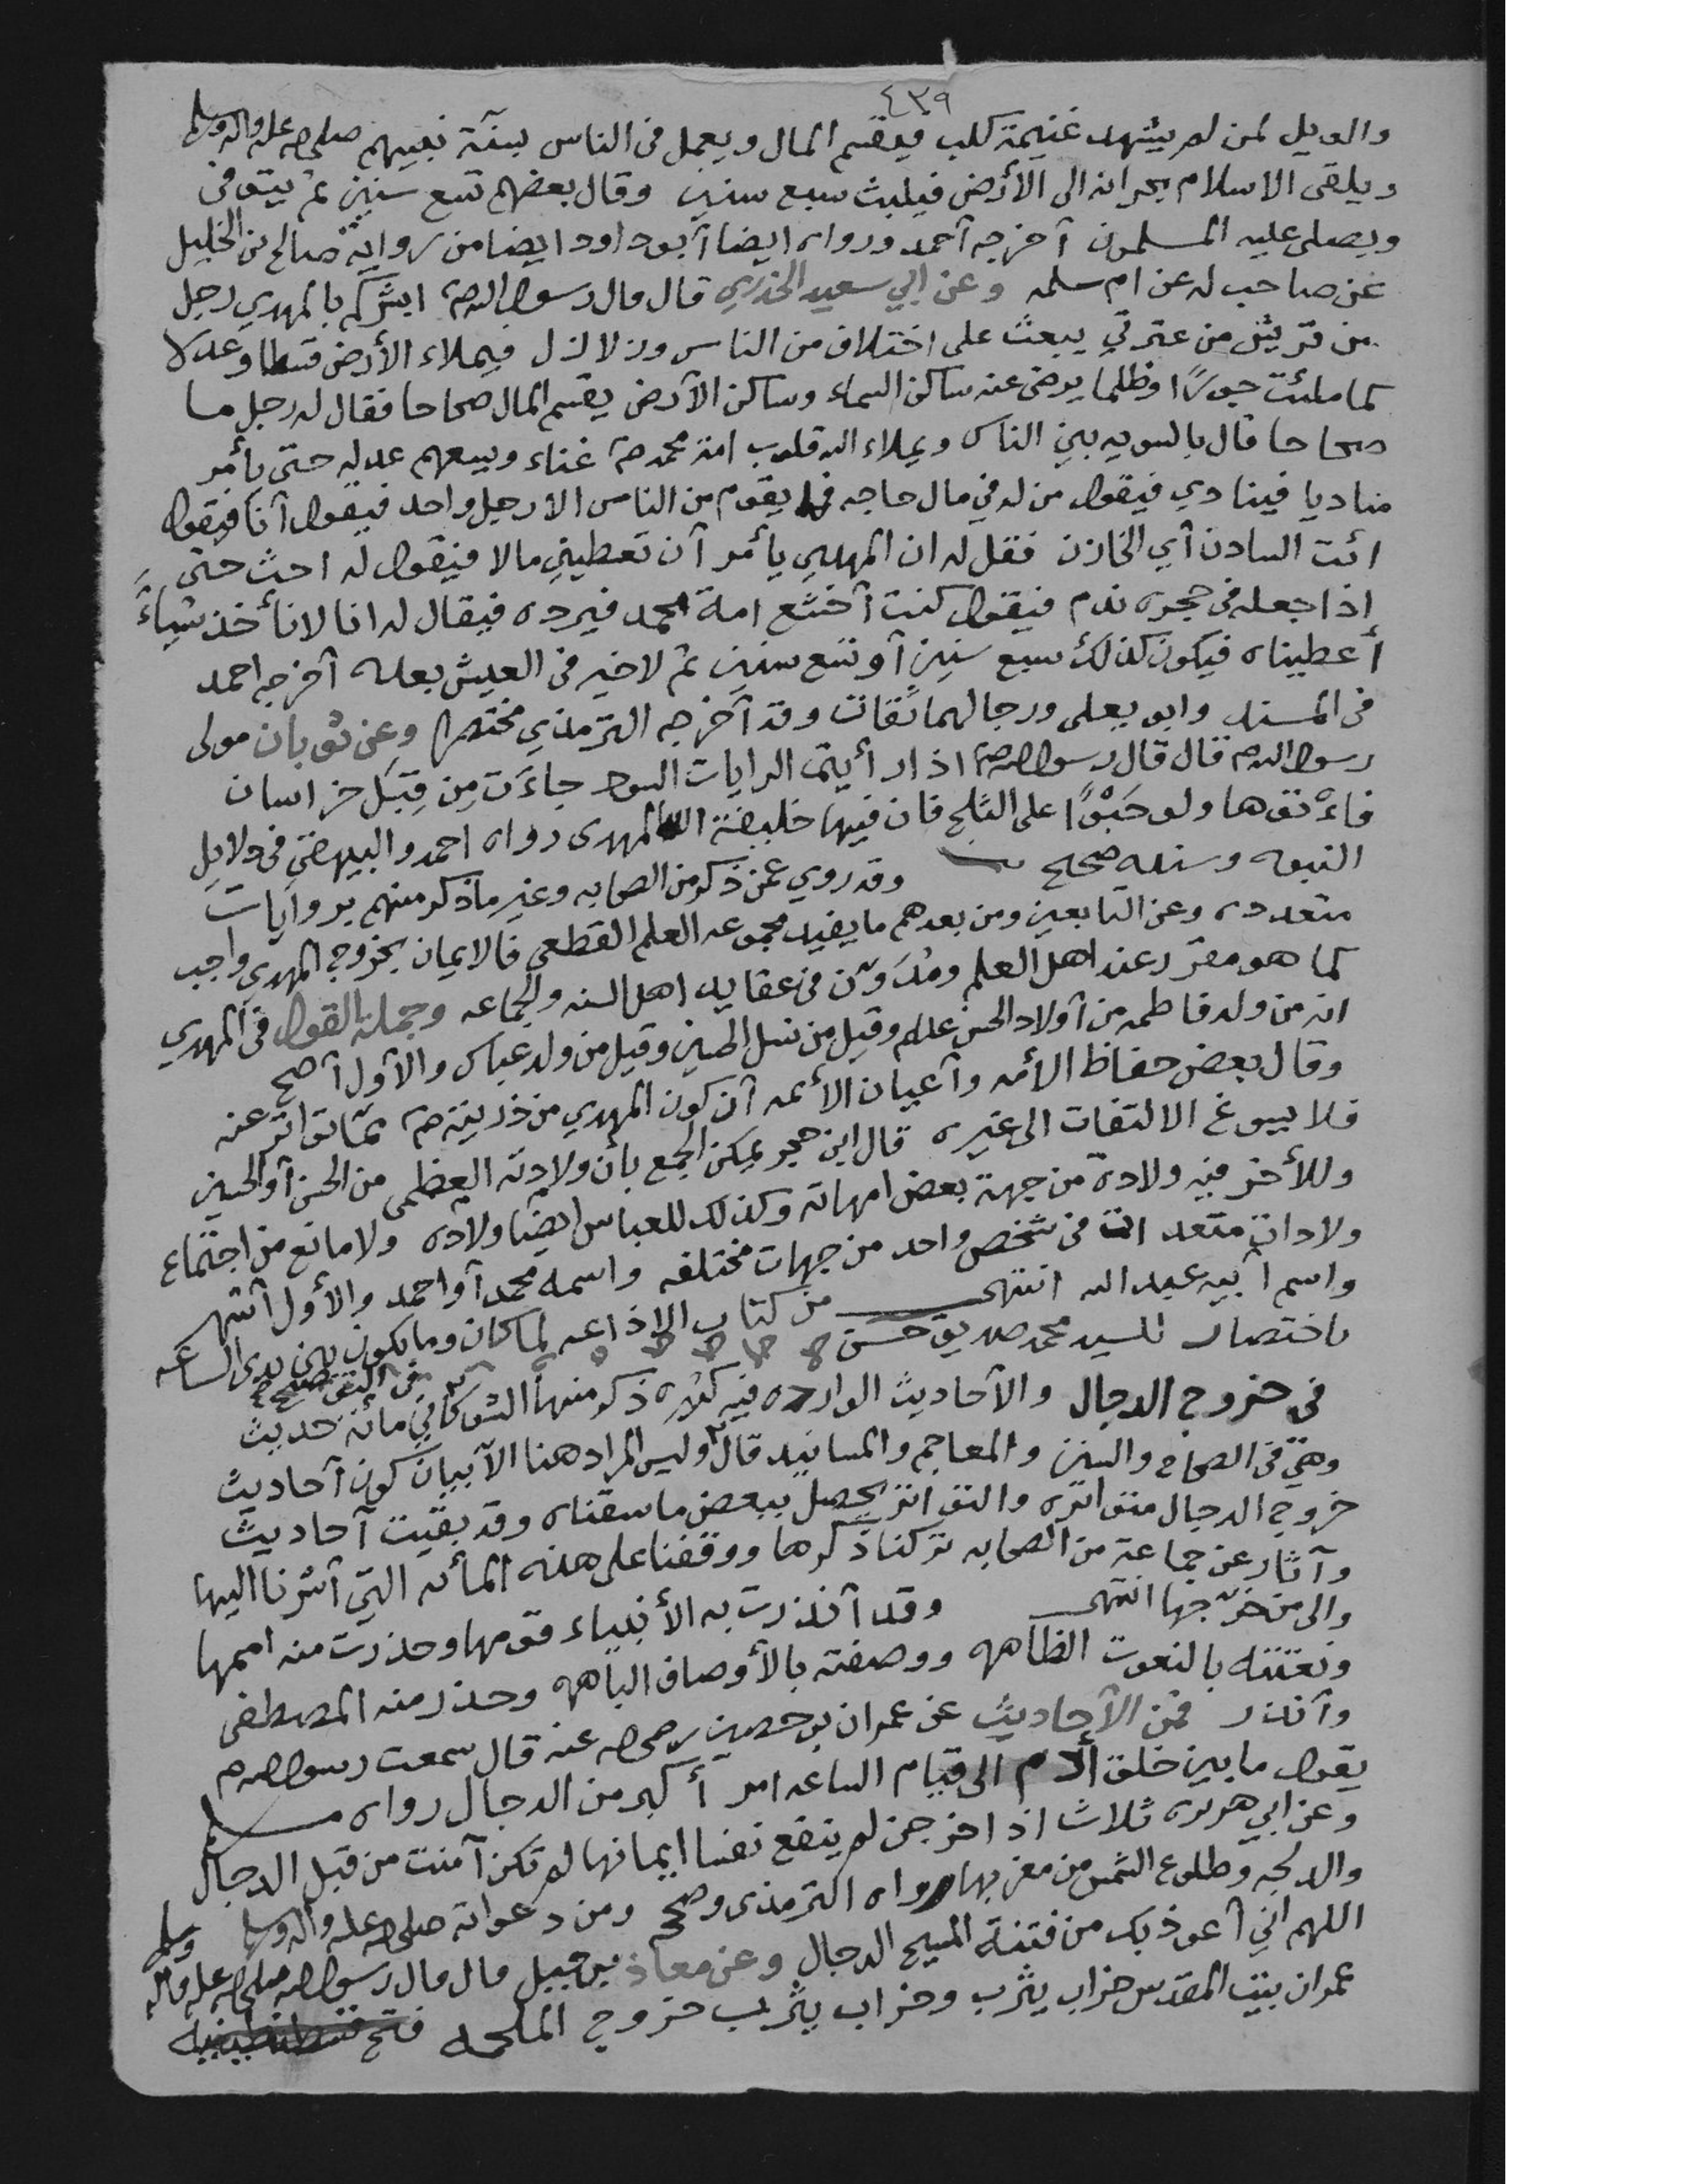 ٤٣٩
والويل لمن لم يشهد غنيمة كلب فيقسم المال ويعمل في الناس بسنة نبيهم صلى الله عليه واله وسلم
ويلقى الاسلام بجرانه الى الأرض فيلبث سبع سنين وقال بعضهم تسع سنين ثم يتوفى
ويصلى عليه المسلمون أخرجه أحمد ورواه ايضا أبوداود ايضا من رواية صالح بن الخليل
عن صاحب له عن ام سلمه وعن ابي سعيد الخدري قال قال رسول الله ص ابشركم بالمهدي رجل
من قريش من عترتي يبعث على اختلاف من الناس وزلازل فيملاء الأرض قسطا وعدلا
كما ملئت جورًا وظلما يرضى عنه ساكن السماء وساكن الأرض يقسم المال صحاحا فقال له رجل ما
صحاحا قال بالسويه بين الناس ويملاء الله قلوب امة محمد ص غناء ويسعهم عدله حتى يأمر
مناديا فينادي فيقول من له في مال حاجه فما يقوم من الناس الا رجل واحد فيقول أنا فيقول
ائت السادن أي الخازن فقل له ان المهدي يأمر أن تعطيني مالا فيقول له احث حتى
اذا جعله في حجره ندم فيقول كنت أخشع امة محمد فيرده فيقال له انا لا نأخذ شياءً
أعطيناه فيكون كذلك سبع سنين أو تسع سنين ثم لا خير في العيش بعده أخرجه احمد
في المسند وابو يعلى ورجالهما ثقات وقد أخرجه الترمذي مختصرا وعن ثوبان مولى
رسول الله ص قال قال رسول الله ص اذا رأيتم الرايات السود جاءَت مِن قِبَل خراسان
فاءْتوها ولو حَبْوًا على الثلج فان فيها خليفة الله المهدى رواه احمد والبيهقي في دلايل
النبوه وسنده صحيح وقد روي عمن ذكر من الصحابه وغير ما ذكر منهم بروايات
متعدده وعن التابعين ومن بعدهم ما يفيد مجموعه العلم القطعي فالايمان بخروج المهدي واجب
كما هو مقرر عند اهل العلم ومُدَوّن في عقايد اهل السنه والجماعه وجملة القول في المهدي
انه من ولد فاطمه من أولاد الحسن علم وقيل من نسل الحسين وقيل من ولد عباس والأول أصح
وقال بعض حفاظ الأمه وأعيان الأئمه أن كون المهدي من ذريته ص مما تواتر عنه
فلا يسوغ الالتفات الى غيره قال ابن حجر يمكن الجمع بأن ولادته العظمى من الحسن أو الحسين
وللأخر فيه ولادة من جهة بعض امهاته وكذلك للعباس ايضًا ولاده ولا مانع من اجتماع
ولادات متعددات في شخص واحد من جهات مختلفه واسمه محمد أو احمد والأول أشهر
واسم أبيه عبد الله انتهى من كتاب الاذاعه لما كان وما يكون بين يدى الساعه
باختصار للسيد محمد صديق حسن
في خروج الدجال والأحاديث الوارده فيه كثيره ذكر منها الشوكاني في التوضيح مائة حديث
وهي في الصحاح والسنن والمعاجم والمسانيد قال وليس المراد هنا الا بيان كون أحاديث
خروج الدجال متواتره والتواتر يحصل ببعض ما سقناه وقد بقيت أحاديث
وأثار عن جماعة من الصحابه تركنا ذكرها ووقفنا على هذه المأئه التي أشرنا اليها
والى من خرّجها انتهى وقد أنذرت به الأنبياء قومها وحذرت منه اممها
ونعتته بالنعوت الظاهره ووصفته بالأوصاف الباهره وحذر منه المصطفى
وأنذر فمن الأحاديث عن عمران بن حصين رضي الله عنه قال سمعت رسول الله ص
يقول ما بين خلق أدم الى قيام الساعه امر أكبر من الدجال رواه مسلم
وعن ابي هريره ثلاث اذا خرجن لم ينفع نفسا ايمانها لم تكن آمنت من قبل الدجال
والدابه وطلوع الشمس من مغربها رواه الترمذى وصححه ومن دعواته صلى الله عليه واله وسلم
اللهم اني أعوذ بك من فتنة المسيح الدجال وعن معاذ بن جبل قال قال رسول الله صلى الله عليه واله وسلم
عمران بيت المقدس خراب يثرب وخراب يثرب خروج الملحمه فتح قسطنطينيه